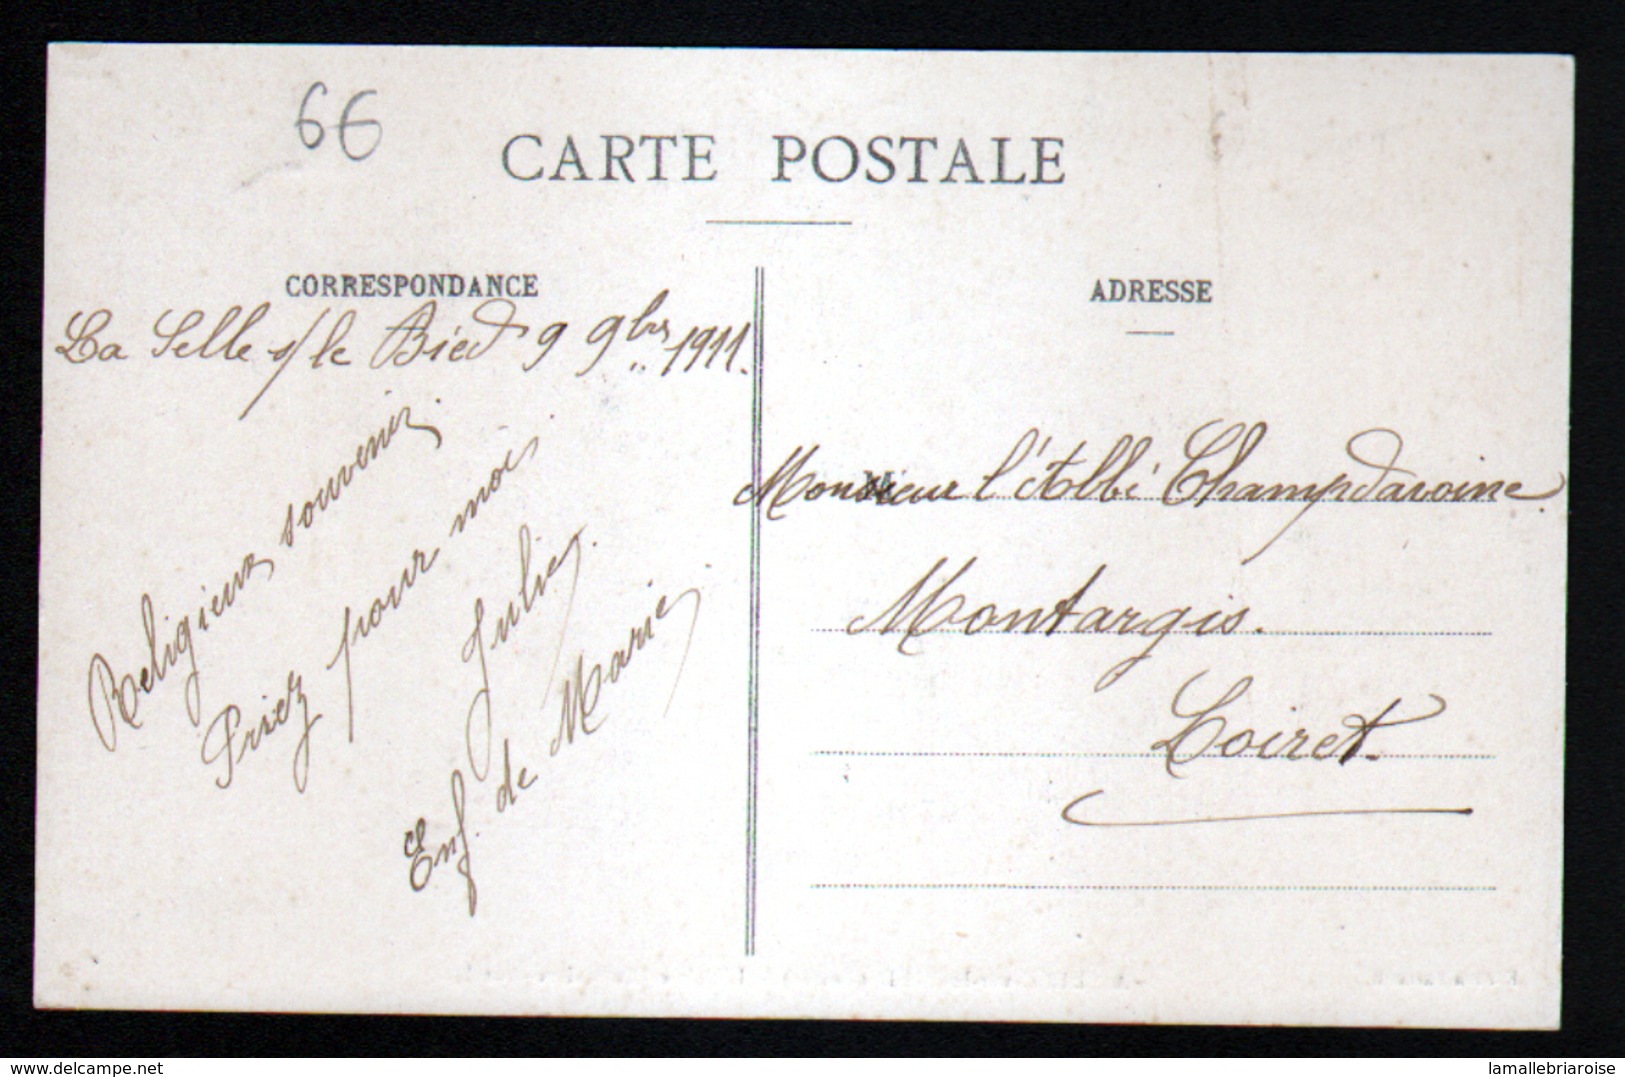 66
CARTE POSTALE
CORRESPONDANCE
La Selle s/ le Bied 9 9bre 1911.
Religieux souvenir.
Priez pour moi
Julie.
Enf. de Marie
ADRESSE
Monsieur l'Abbé Champdavoine.
Montargis.
Loiret.
www.delcampe.net
lamallebriaroise